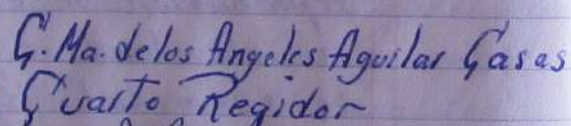 C. Ma. de los Angeles Aguilar Casas
Cuarto Regidor